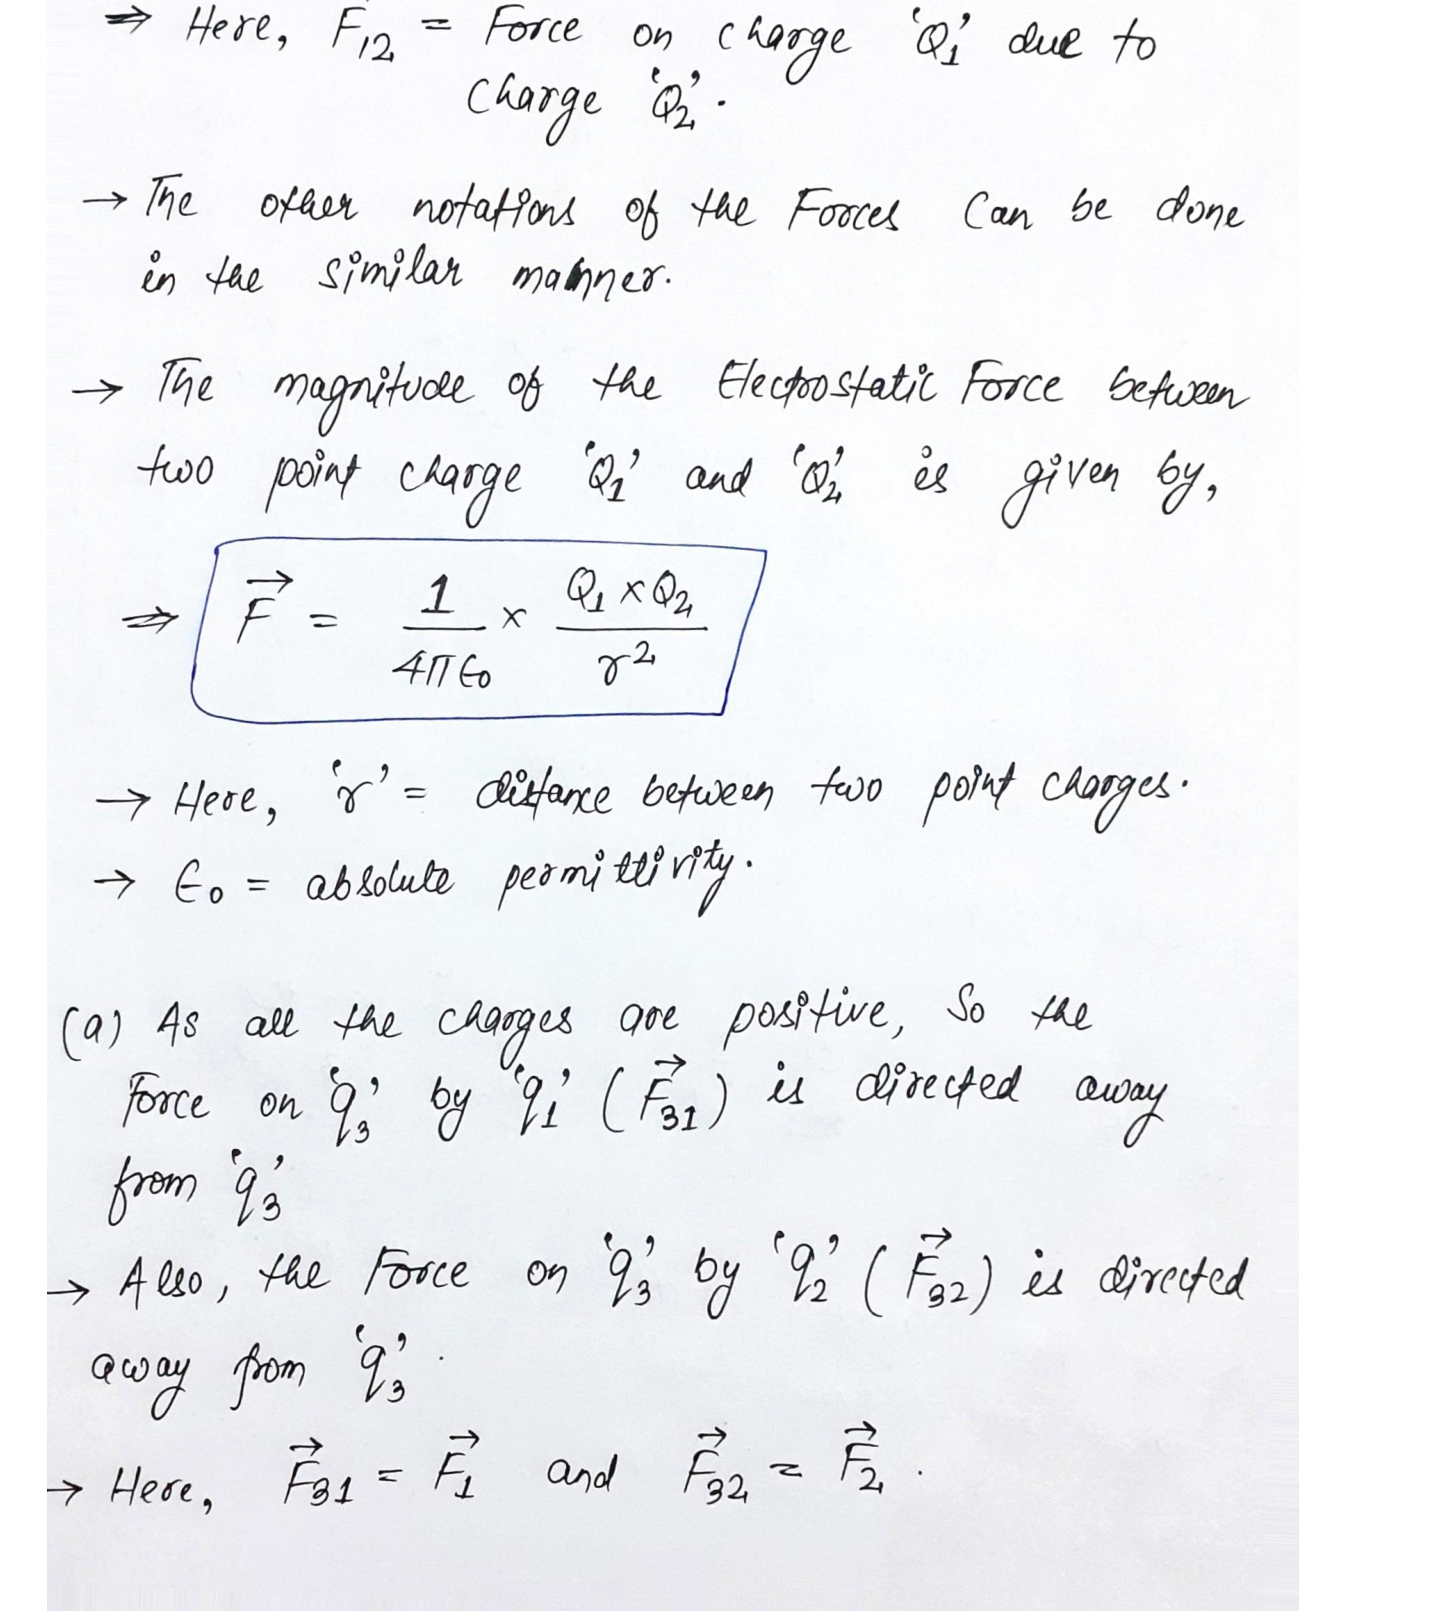 ⇒ Here, F₁₂ = Force on charge 'Q₁' due to
charge 'Q₂'.
→ The other notations of the Forces can be done
in the similar manner.
→ The magnitude of the Electrostatic Force between
two point charge 'Q₁' and 'Q₂' is given by,
⇒ F⃗ = 1/4π∈₀ × Q₁×Q₂/r²
→ Here, 'r' = distance between two point charges.
→ ∈₀ = absolute permittivity.
(a) As all the charges are positive, So the
Force on 'q₃' by 'q₁' (F⃗₃₁) is directed away
from 'q₃'
→ Also, the Force on 'q₃' by 'q₂' (F⃗₃₂) is directed
away from 'q₃'.
→ Here, F⃗₃₁ = F⃗₁ and F⃗₃₂ = F⃗₂.